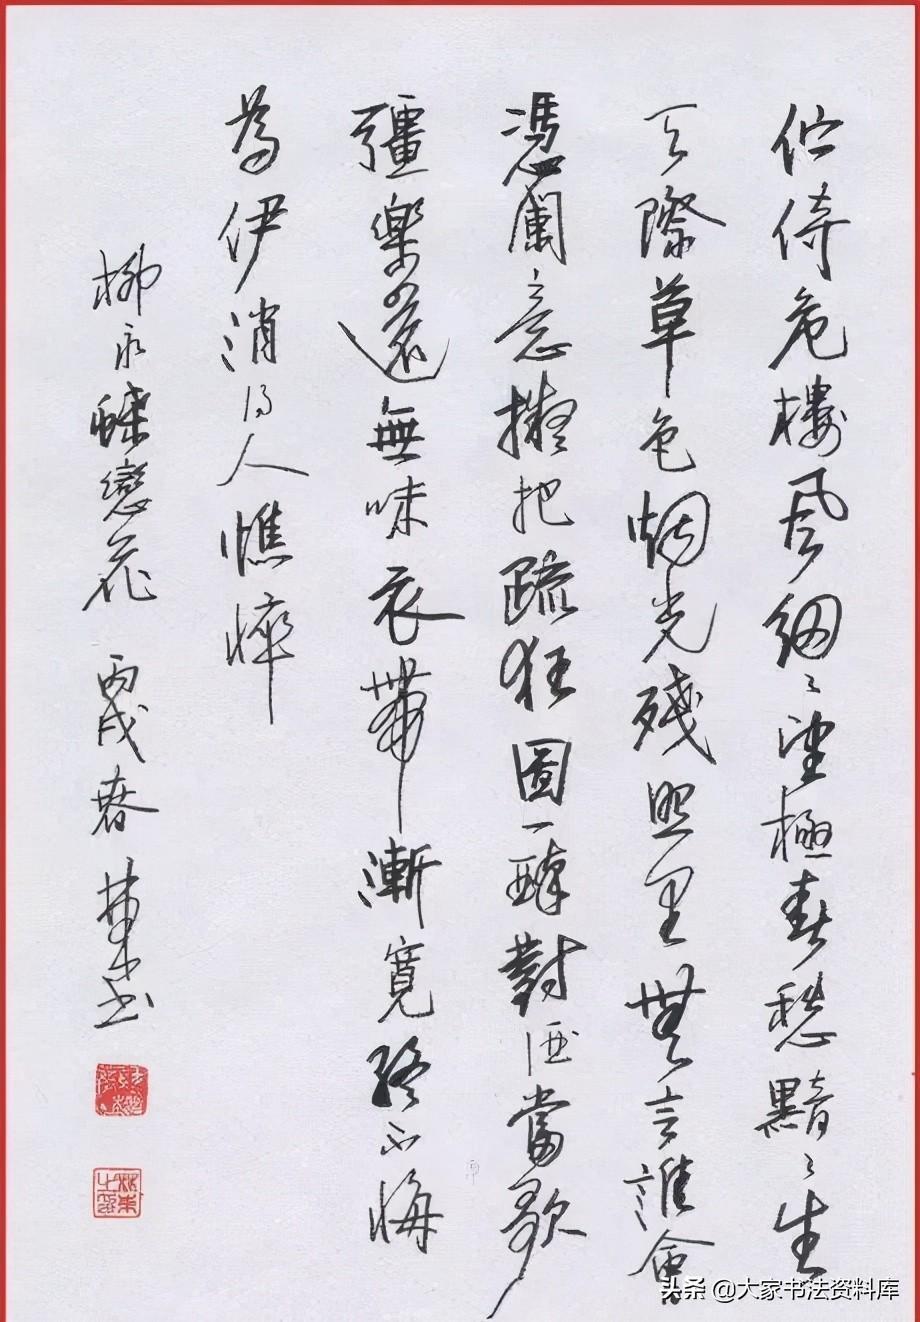 伫倚危樓風細々望極春愁黯々生
天際草色烟光殘照里無言誰會
憑闌意擬把疏狂圖一醉對酒當歌
彊樂還無味衣帶漸寬終不悔
為伊消得人憔悴
柳永蝶戀花 丙戌春 書
头条 @大家书法资料库